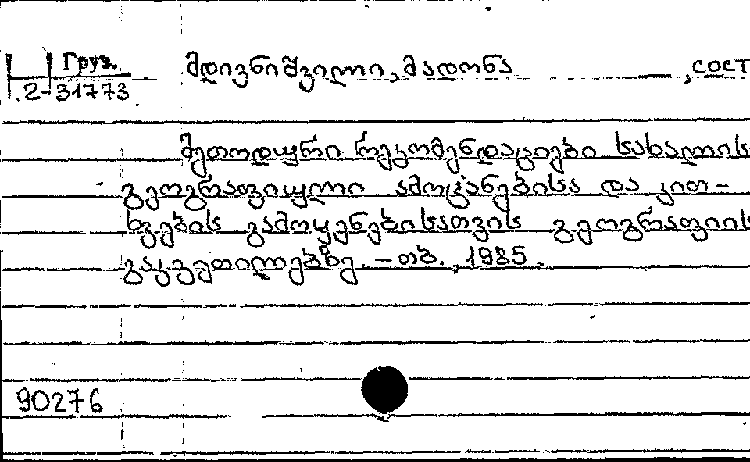 Груз.
2-31773
მდივნიშვილი, მადონა , сост
მეთოდური რეკომენდაციები სახალისო
გეოგრაფიული ამოცანებისა და კით-
ხვების გამოყენებისათვის გეოგრაფიის
გაკვეთილებზე. – თბ., 1985.
90276